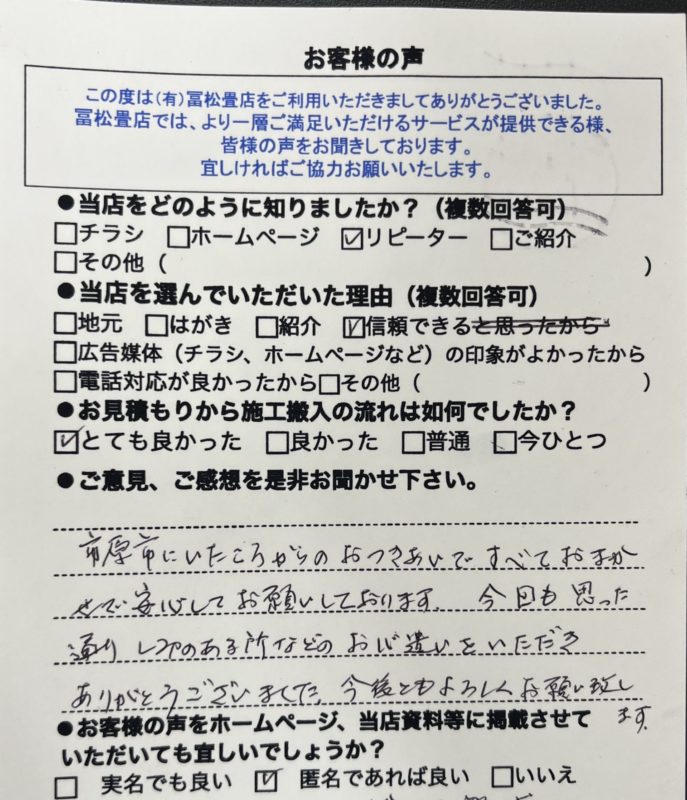 お客様の声
この度は(有)冨松畳店をご利用いただきましてありがとうございました。
冨松畳店では、より一層ご満足いただけるサービスが提供できる様、
皆様の声をお聞きしております。
宜しければご協力お願いいたします。
●当店をどのように知りましたか？（複数回答可）
□チラシ □ホームページ ☑リピーター □ご紹介
□その他（ ）
●当店を選んでいただいた理由（複数回答可）
□地元 □はがき □紹介 ☑信頼できると思ったから
□広告媒体（チラシ、ホームページなど）の印象がよかったから
□電話対応が良かったから□その他（ ）
●お見積もりから施工搬入の流れは如何でしたか？
☑とても良かった □良かった □普通 □今ひとつ
●ご意見、ご感想を是非お聞かせ下さい。
市原市にいたころからのおつきあいで すべておまか
せで安心してお願いしております。 今回も思った
通り しみのある所などの お心遣いをいただき
ありがとうございました。今後ともよろしくお願い致し
ます。
●お客様の声をホームページ、当店資料等に掲載させて
いただいても宜しいでしょうか？
□ 実名でも良い ☑ 匿名であれば良い □いいえ